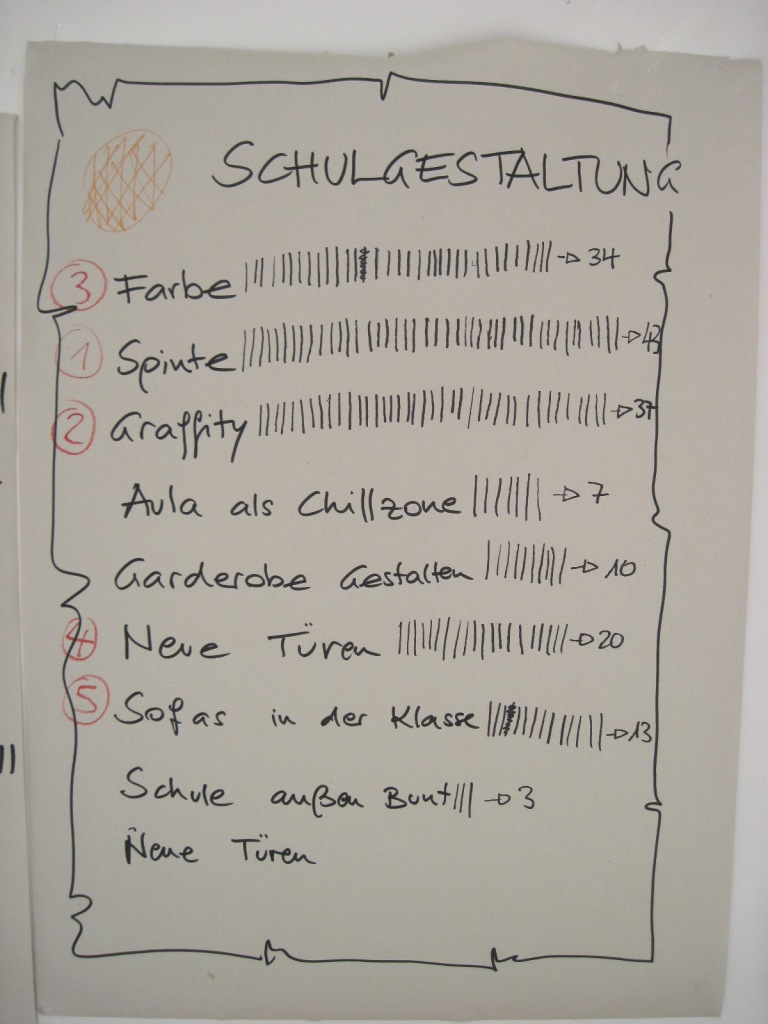 SCHULGESTALTUNG
3 Farbe → 34
1 Spinte → 43
2 Graffity → 37
Aula als Chillzone → 7
Garderobe Gestalten → 10
4 Neue Türen → 20
5 Sofas in der Klasse → 13
Schule außen Bunt → 3
Neue Türen